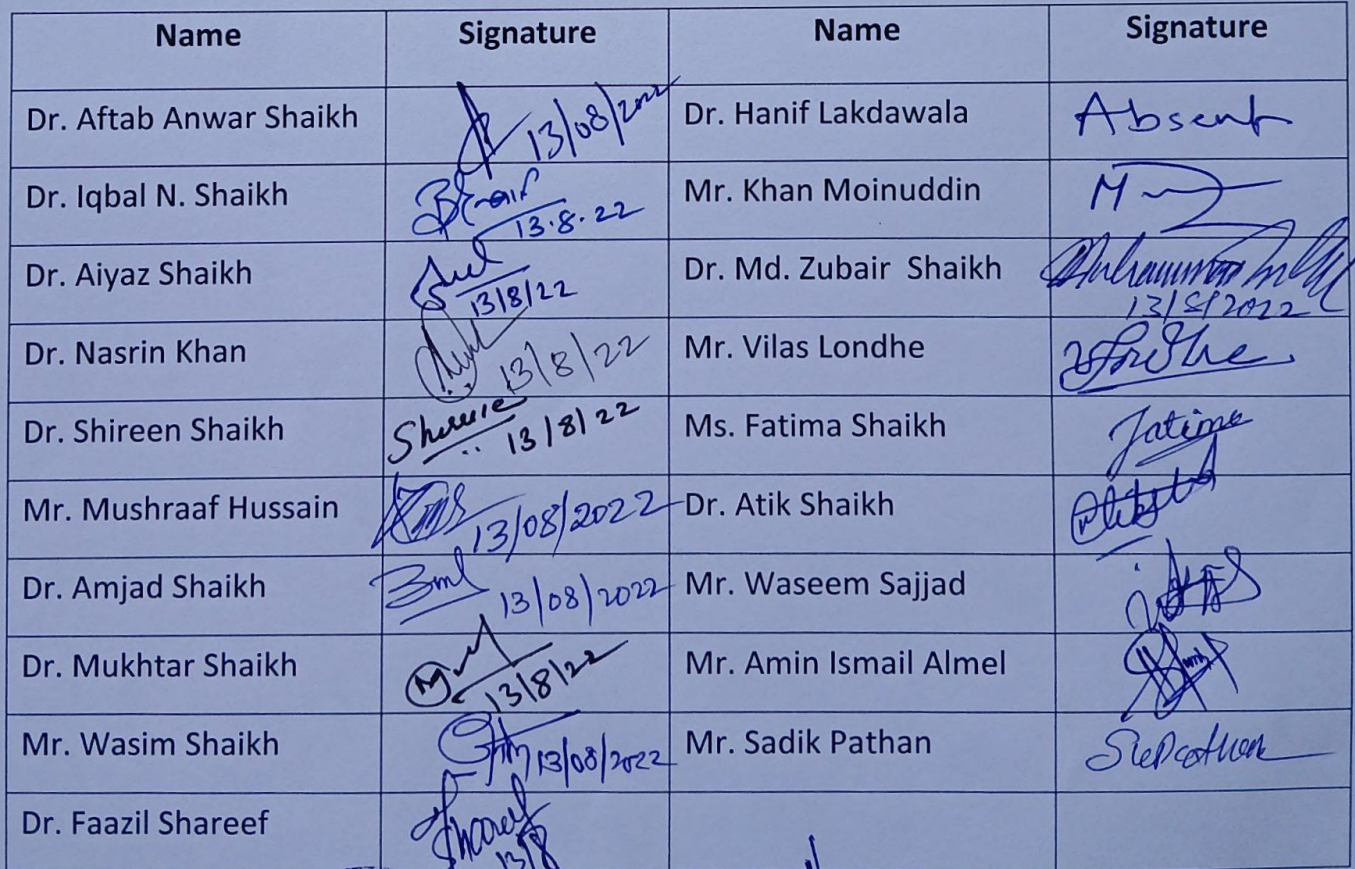 Name Signature Name Signature
Dr. Aftab Anwar Shaikh 13/08/2022 Dr. Hanif Lakdawala Absent
Dr. Iqbal N. Shaikh 13.8.22 Mr. Khan Moinuddin
Dr. Aiyaz Shaikh 13/8/22 Dr. Md. Zubair Shaikh 13/8/2022
Dr. Nasrin Khan 13/8/22 Mr. Vilas Londhe
Dr. Shireen Shaikh 13/8/22 Ms. Fatima Shaikh Fatima
Mr. Mushraaf Hussain 13/08/2022 Dr. Atik Shaikh
Dr. Amjad Shaikh 13/08/2022 Mr. Waseem Sajjad
Dr. Mukhtar Shaikh 13/8/22 Mr. Amin Ismail Almel
Mr. Wasim Shaikh 13/08/2022 Mr. Sadik Pathan
Dr. Faazil Shareef 13/8